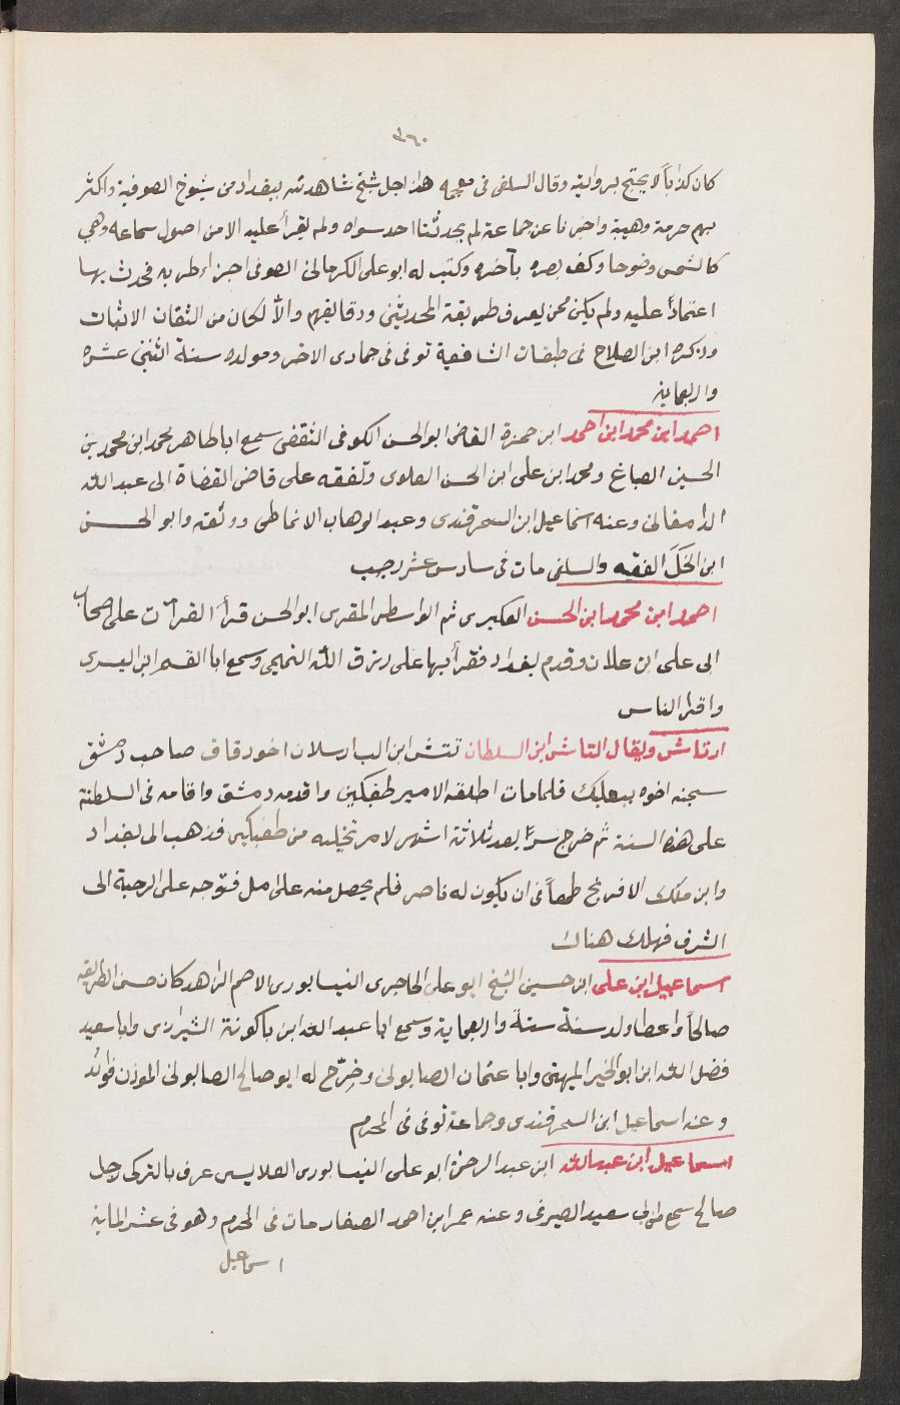 ٣٦٠
كان كذاباً لا يحتج بروايته وقال السلفى فى معجمه هذا اجل شيخ شاهدته ببغداد من شيوخ الصوفية واكثر
بهم حرمة وهيبة واخبرنا عن جماعة لم يحدثنا احد سواه ولم يقرأ عليه الا من اصول سماعه وهي
كالشمس وضوحا وكف بصره بآخره وكتب له ابو على الكرمانى الصوفى اجزاء طريه فحدث بها
اعتماداً عليه ولم يكن ممن يعرف طريقة المحدثين ودقايقهم والا لكان من الثقات الاثبات
وذكره ابن الصلاح فى طبقات الشافعية توفى فى جمادى الاخر ومولده سنة اثنتى عشره
واربعماية
احمد ابن محمد ابن احمد ابن حمزة القاضى ابو الحسن الكوفى الثقفى سمع ابا طاهر محمد ابن محمد بن
الحسين الصباغ ومحمد ابن على ابن الحسن العلوى وتفقه على قاضى القضاة ابى عبد الله
الدامغانى وعنه اسماعيل ابن السمرقندى وعبد الوهاب الانماطى ووثقه وابو الحسن
ابن الخَلّ الفقيه والسلفى مات فى سادس عشر رجب
احمد ابن محمد ابن الحسن العكبرى ثم الواسطى المقرى ابو الحسن قرأ القرآت على اصحاب
ابى على ابن علان وقدم بغداد فقرأ بها على رزق الله التميمى وسمع ابا القسم ابن البسرى
واقرا الناس
ارتاش ويقال التاش ابن السلطان تتش ابن الب ارسلان اخو دقاق صاحب دمشق
سجنه اخوه ببعلبك فلما مات اطلقه الامير طغتكين واقدمه دمشق واقامه فى السلطنة
على هذه السنة ثم خرج سرّاً بعد ثلاثة اشهر لامر تخيله من طغتكين فذهب الى بغداد
وابن ملك الافرنج طمعاً فى ان يكون له ناصر فلم يحصل منه على امل فتوجه على الرحبة الى
الشرق فهلك هناك
اسماعيل ابن على ابن حسين الشيخ ابو على الجاجرى النيسابورى الاصم الزاهد كان حسن الطريقه
صالحاً واعظا ولد سنة ستة واربعماية وسمع ابا عبد الله ابن باكونة الشيرازى وابا سعيد
فضل الله ابن ابو الخير الميهنى وابا عثمان الصابونى وخرّج له ابو صالح الصابونى الموذن فوائد
وعنه اسماعيل ابن السمرقندى وجماعة توفى فى المحرم
اسماعيل ابن عبد الله ابن عبد الرحمن ابو على النيسابورى الصلايسى عرف بالتركى رجل
صالح سمع من ابى سعيد الصيرفى وعنه عمر ابن احمد الصفار مات فى المحرم وهو فى عشر الماية
اسماعيل